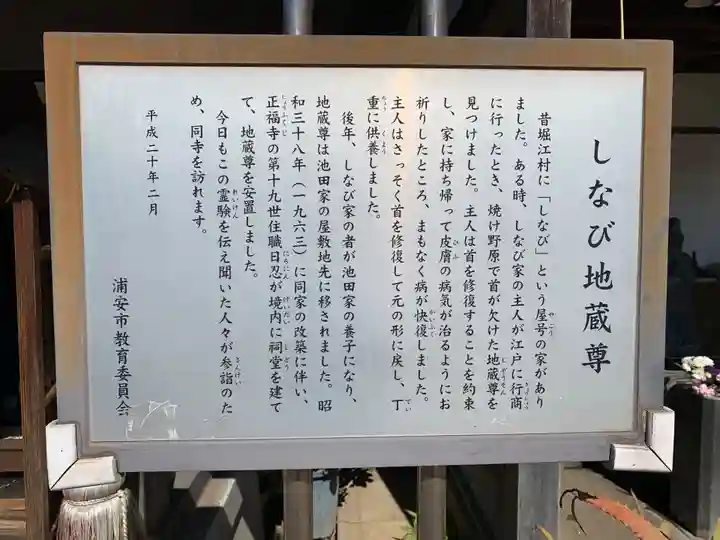 しなび地蔵尊
昔堀江村に「しなび」という屋号の家があり
ました。ある時、しなび家の主人が江戸に行商
に行ったとき、焼け野原で首が欠けた地蔵尊を
見つけました。主人は首を修復することを約束
し、家に持ち帰って皮膚の病気が治るようにお
祈りしたところ、まもなく病が快復しました。
主人はさっそく首を修復して元の形に戻し、丁
重に供養しました。
後年、しなび家の者が池田家の養子になり、
地蔵尊は池田家の屋敷地先に移されました。昭
和三十八年(一九六三)に同家の改築に伴い、
正福寺の第十九世住職日忍が境内に祠堂を建て
て、地蔵尊を安置しました。
今日もこの霊験を伝え聞いた人々が参詣のた
め、同寺を訪れます。
平成二十年二月
浦安市教育委員会